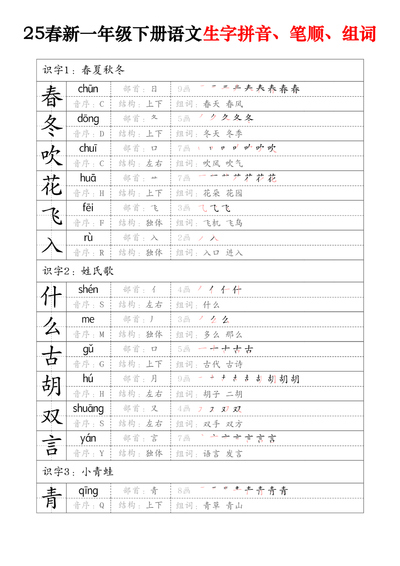 25春新一年级下册语文生字拼音、笔顺、组词
识字1：春夏秋冬
春 chūn 部首：日 9画
音序：C 结构：上下 组词：春天 春风
冬 dōng 部首：夂 5画
音序：D 结构：上下 组词：冬天 冬季
吹 chuī 部首：口 7画
音序：C 结构：左右 组词：吹风 吹气
花 huā 部首：艹 7画
音序：H 结构：上下 组词：花朵 花园
飞 fēi 部首：飞 3画
音序：F 结构：独体 组词：飞机 飞鸟
入 rù 部首：入 2画
音序：R 结构：独体 组词：入口 进入
识字2：姓氏歌
什 shén 部首：亻 4画
音序：S 结构：左右 组词：什么
么 me 部首：丿 3画
音序：M 结构：独体 组词：多么 那么
古 gǔ 部首：口 5画
音序：G 结构：上下 组词：古代 古诗
胡 hú 部首：月 9画
音序：H 结构：左右 组词：胡子 二胡
双 shuāng 部首：又 4画
音序：S 结构：左右 组词：双手 双方
言 yán 部首：言 7画
音序：Y 结构：独体 组词：语言 发言
识字3：小青蛙
青 qīng 部首：青 8画
音序：Q 结构：上下 组词：青草 青山